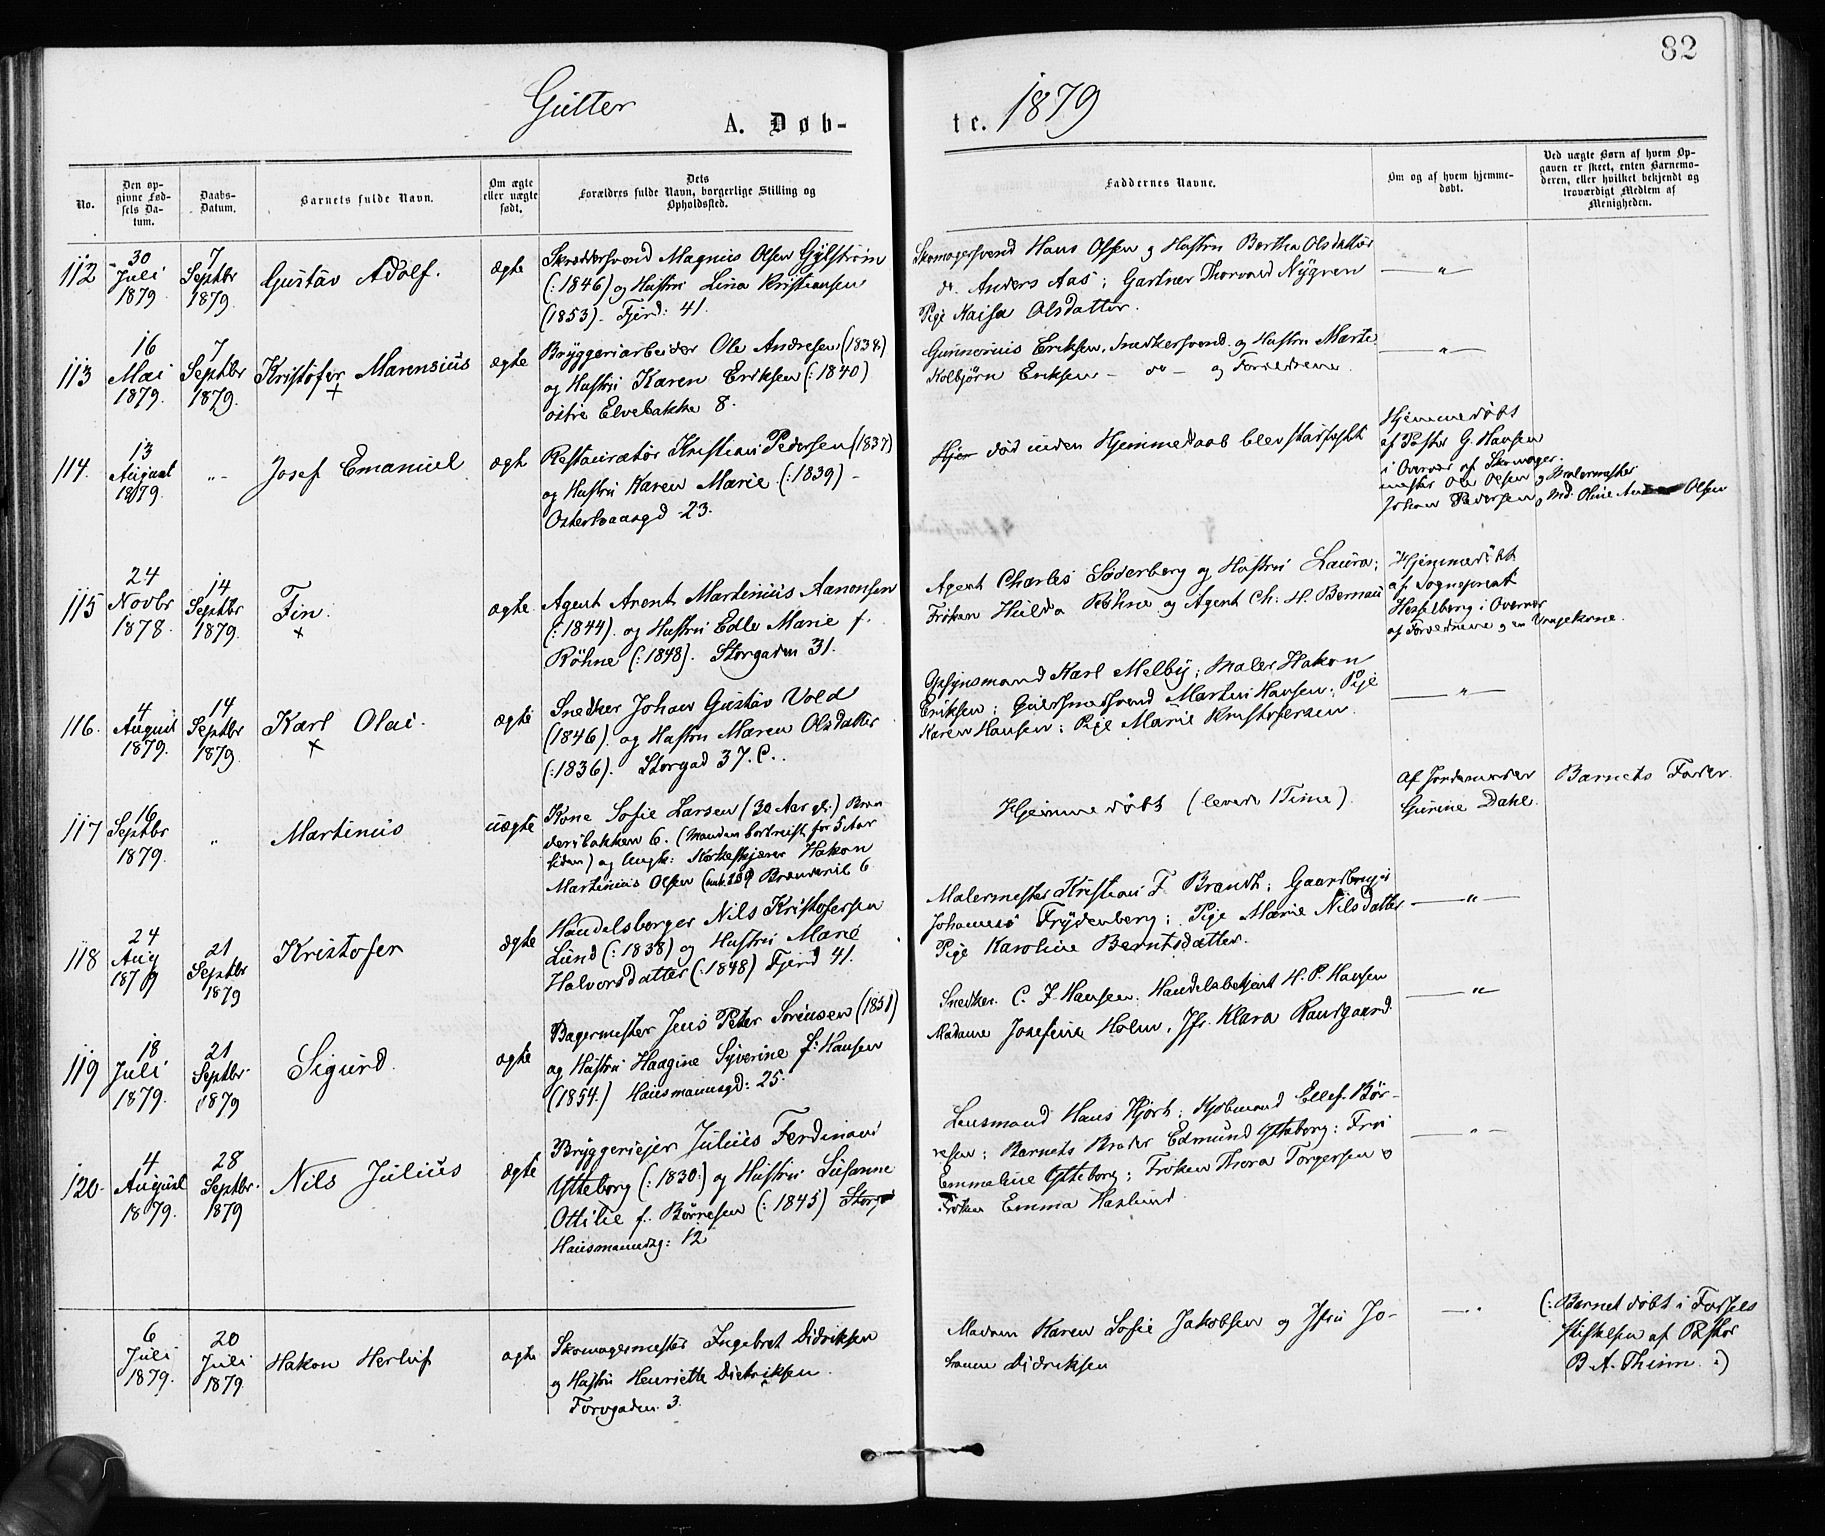 82
Gutter
A. Døb-
te.
1879
No.
Den op-
givne Fød-
sels Da-
tum.
Daabs-
Datum.
Barnets fulde Navn.
Om ægte
eller uægte
født.
Dets
Forældres fulde Navn, borgerlige Stilling og
Opholdssted.
Faddernes Navne.
Om og af hvem hjemme-
døbt.
Ved uægte Børn af hvem Op-
gaven er skeet, enten Barnemo-
deren, eller hvilket bekjendt og
troværdigt Medlem af
Menigheden.
112
30
Juli
1879
7
Septbr
1879.
Gustav Adolf.
ægte
Skræddersvend Magnus Olsen Gylstrøm
(:1846) og Hustru Lina Kristiansen
(1853). Fjerd: 41.
Skomagersvend Hans Olsen og Hustru Bertha Olsdatter
Anders Aas; Gartner Thorvald Nygren
Pige Kaisa Olsdatter.
— " —
113
16
Mai
1879.
7
Septbr
1879.
Kristofer Marensius
+
ægte
Bryggeriarbeider Ole Andresen (1834.)
og Hustru Karen Eriksen (:1840)
østre Elvebakke 8.
Gunnerius Eriksen, Snedkersvend og Hustru Marte.
Kolbjørn Eriksen — do — og Forældrene.
— " —
114.
13
August
1879.
" -
Josef Emanuel
ægte
Restauratør Kristian Pedersen (1837)
og Hustru Karen Marie (:1839) -
Osterhausgd 23.
Hjem død inden Hjemmedaab blev stadfæstet
Hjemmedøbt
af Pastor G. Hansen
i Overvær af Skomager-
mester Ole Olsen og Malermester
Johan Pedersen og Md. Oline Olsen
115
24
Novbr
1878.
14
Septbr
1879.
Fin.
x
ægte
Agent Arent Martinius Aanonsen
(:1844). og Hustru Edle Marie f.
Røhne (:1848). Storgaden 31.
Agent Charles Søderberg og Hustru Laura;
Frøken Hulda Røhne og Agent Ch. H. Bernau
Hjemmedøbt
af Sogneprest
Hesselberg i Overvær
af Forældrene og en Vaagekone.
116.
4
August
1879.
14
Septbr
1879.
Karl Olai.
x
ægte
Snedker Johan Gustav Vold
(1846). og Hustru Maren Olsdatter
(:1836). Storgad 37. C..
Opsynsmand Karl Melby; Maler Hakon
Eriksen; Guldsmedsvend Martin Hansen; Pige
Karen Hansen; Pige Marie Kristofersen.
— " —
117
16
Septbr
1879.
"
Martinius
uægte
Kone Sofie Larsen (30 Aar gl.) Bran
deribakken 6. (Manden bortreist for 5 Aar
siden) og Ungk: Korkeskjærer Hakon
Martinius Olsen Brænderib 6
Hjemmedøbt (levede 1 Time).
Af Jordemoder
Gurine Dahl.
Barnets Fader.
118
24
Aug
1879
21
Septbr
1879
Kristofer
ægte
Handelsborger Nils Kristofersen
Lund (:1838) og Hustru Marie
Halvorsdatter (:1848) Fjerd 41.
Malermester Kristian F. Brandt; Gaardbruger
Johannes Frydenberg; Pige Marie Nilsdatter
Pige Karoline Berntsdatter.
— " —
119
18
Juli
1879.
21
Septbr
1879
Sigurd.
ægte
Bagermester Jens Peter Sørensen (1851)
og Hustru Haagine Syverine f: Hansen
(1854.) Hausmannsgd: 25.
Snedker. C. F. Hansen. Handelsbetjent H. P. Hansen
Madame Josefine Holm, Jfr. Klara Raasgaard.
— " —
120.
4
August
1879.
28
Septbr.
1879
Nils Julius
ægte
Bryggerieier Julius Ferdinand
Ytteborg (:1830:) og Hustru Susanne
Ottilie f. Børresen (:1845) Storgd
Hausmannsg: 12
Lensmand Hans Hjorth; Kjøbmand Ellef Bør-
resen; Barnets Broder Edmund Ytteborg: Fru
Emmeline Ytteborg; Frøken Thora Torgersen o
Frøken Emma Haslund.
— " —
6
Juli
1879.
20
Juli
1879.
Hakon Herluf
ægte
Skomagermester Ingebret Didriksen
og Hustru Henriette Didriksen.
Torvgaden 3.
Madam Karen Sofie Jakobsen og Jfru Jo-
hanne Didriksen
— "
(: Barnet døbt i Fødsels
stiftelsen af Pastor
B A. Thinn. :)